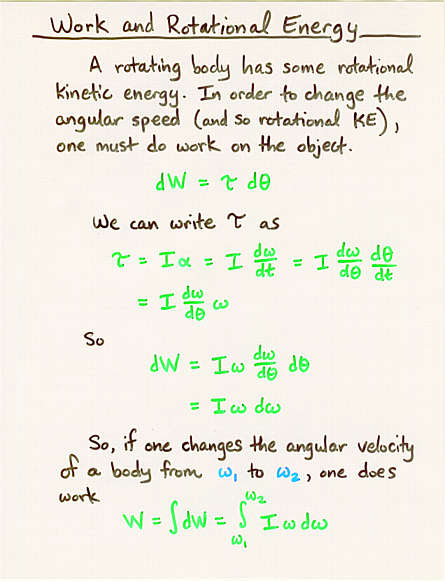 Work and Rotational Energy
A rotating body has some rotational
kinetic energy. In order to change the
angular speed (and so rotational KE),
one must do work on the object.
dW = τ dθ
We can write τ as
τ = I α = I dω/dt = I dω/dθ dθ/dt
= I dω/dθ ω
So
dW = I ω dω/dθ dθ
= I ω dω
So, if one changes the angular velocity
of a body from ω₁ to ω₂, one does
work
W = ∫dW = ∫_ω₁^ω₂ I ω dω